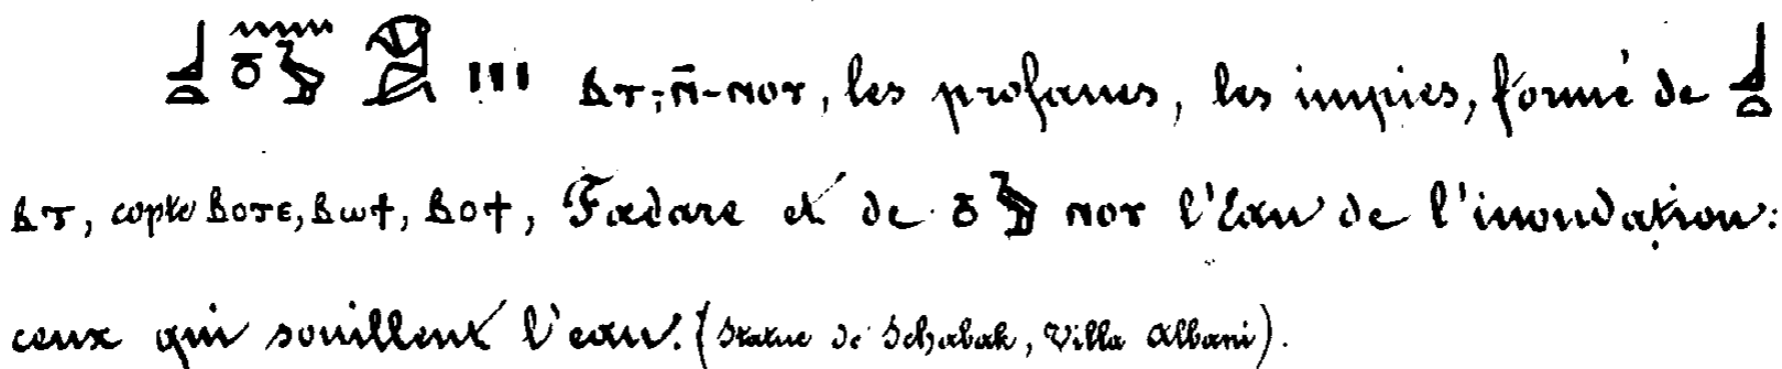 𓃀𓏏 𓈖𓏌𓅱 𓏥 ⲃⲧ-ⲛ̄-ⲛⲟⲩ, les profanes, les impies, formé de 𓃀𓏏
ⲃⲧ, copte ⲃⲟⲧⲉ, ⲃⲱϯ, ⲃⲟϯ, Fœdare et de 𓏌𓅱 ⲛⲟⲩ l'Eau de l'inondation:
ceux qui souillent l'eau. (Statue de Schabak, Villa Albani).